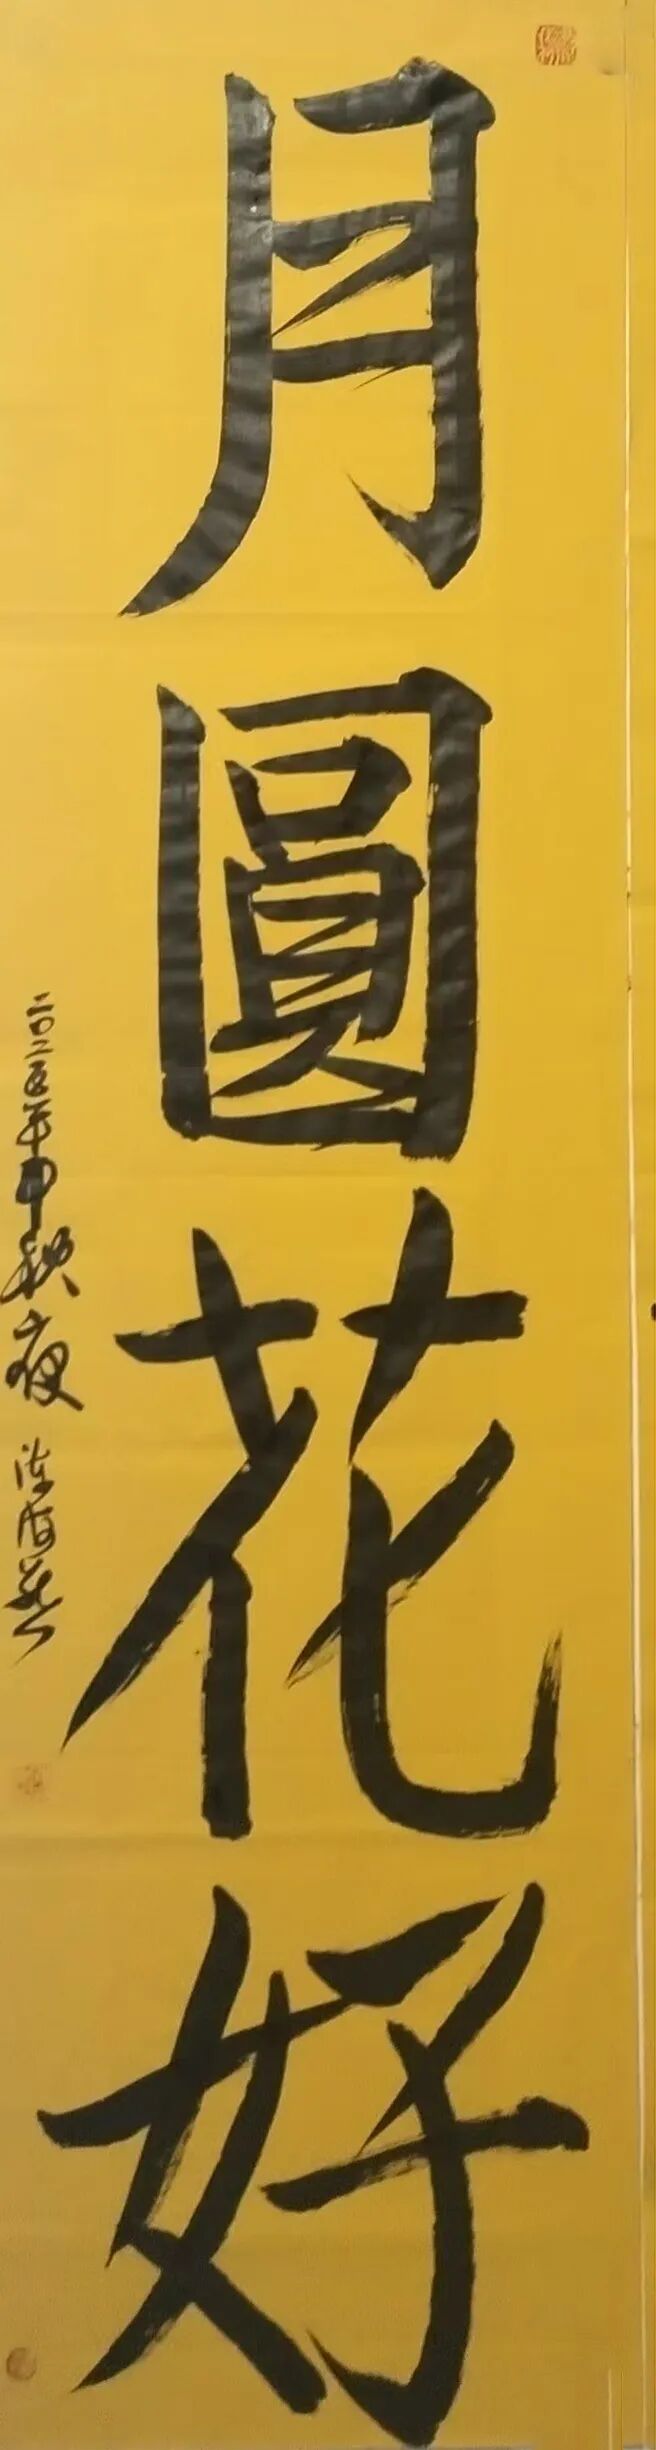 月圓花好
二〇二五年中秋夜